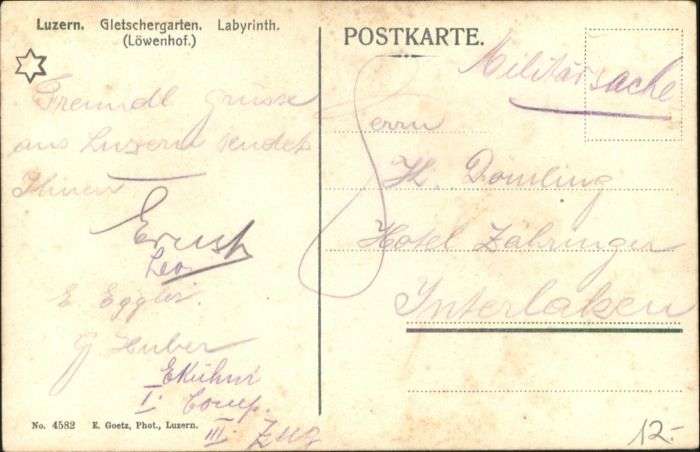 Luzern. Gletschergarten. Labyrinth.
(Löwenhof.)
Freundl Grüsse
aus Luzern sendet
Ihnen
Ernst
Leo
E Eggli
G Huber
I. Comp.
III. Zug
No. 4582 E. Goetz, Phot., Luzern.
POSTKARTE.
Militärsache
Herrn
H. Domling
Hotel Zähringer
Interlaken
12.-